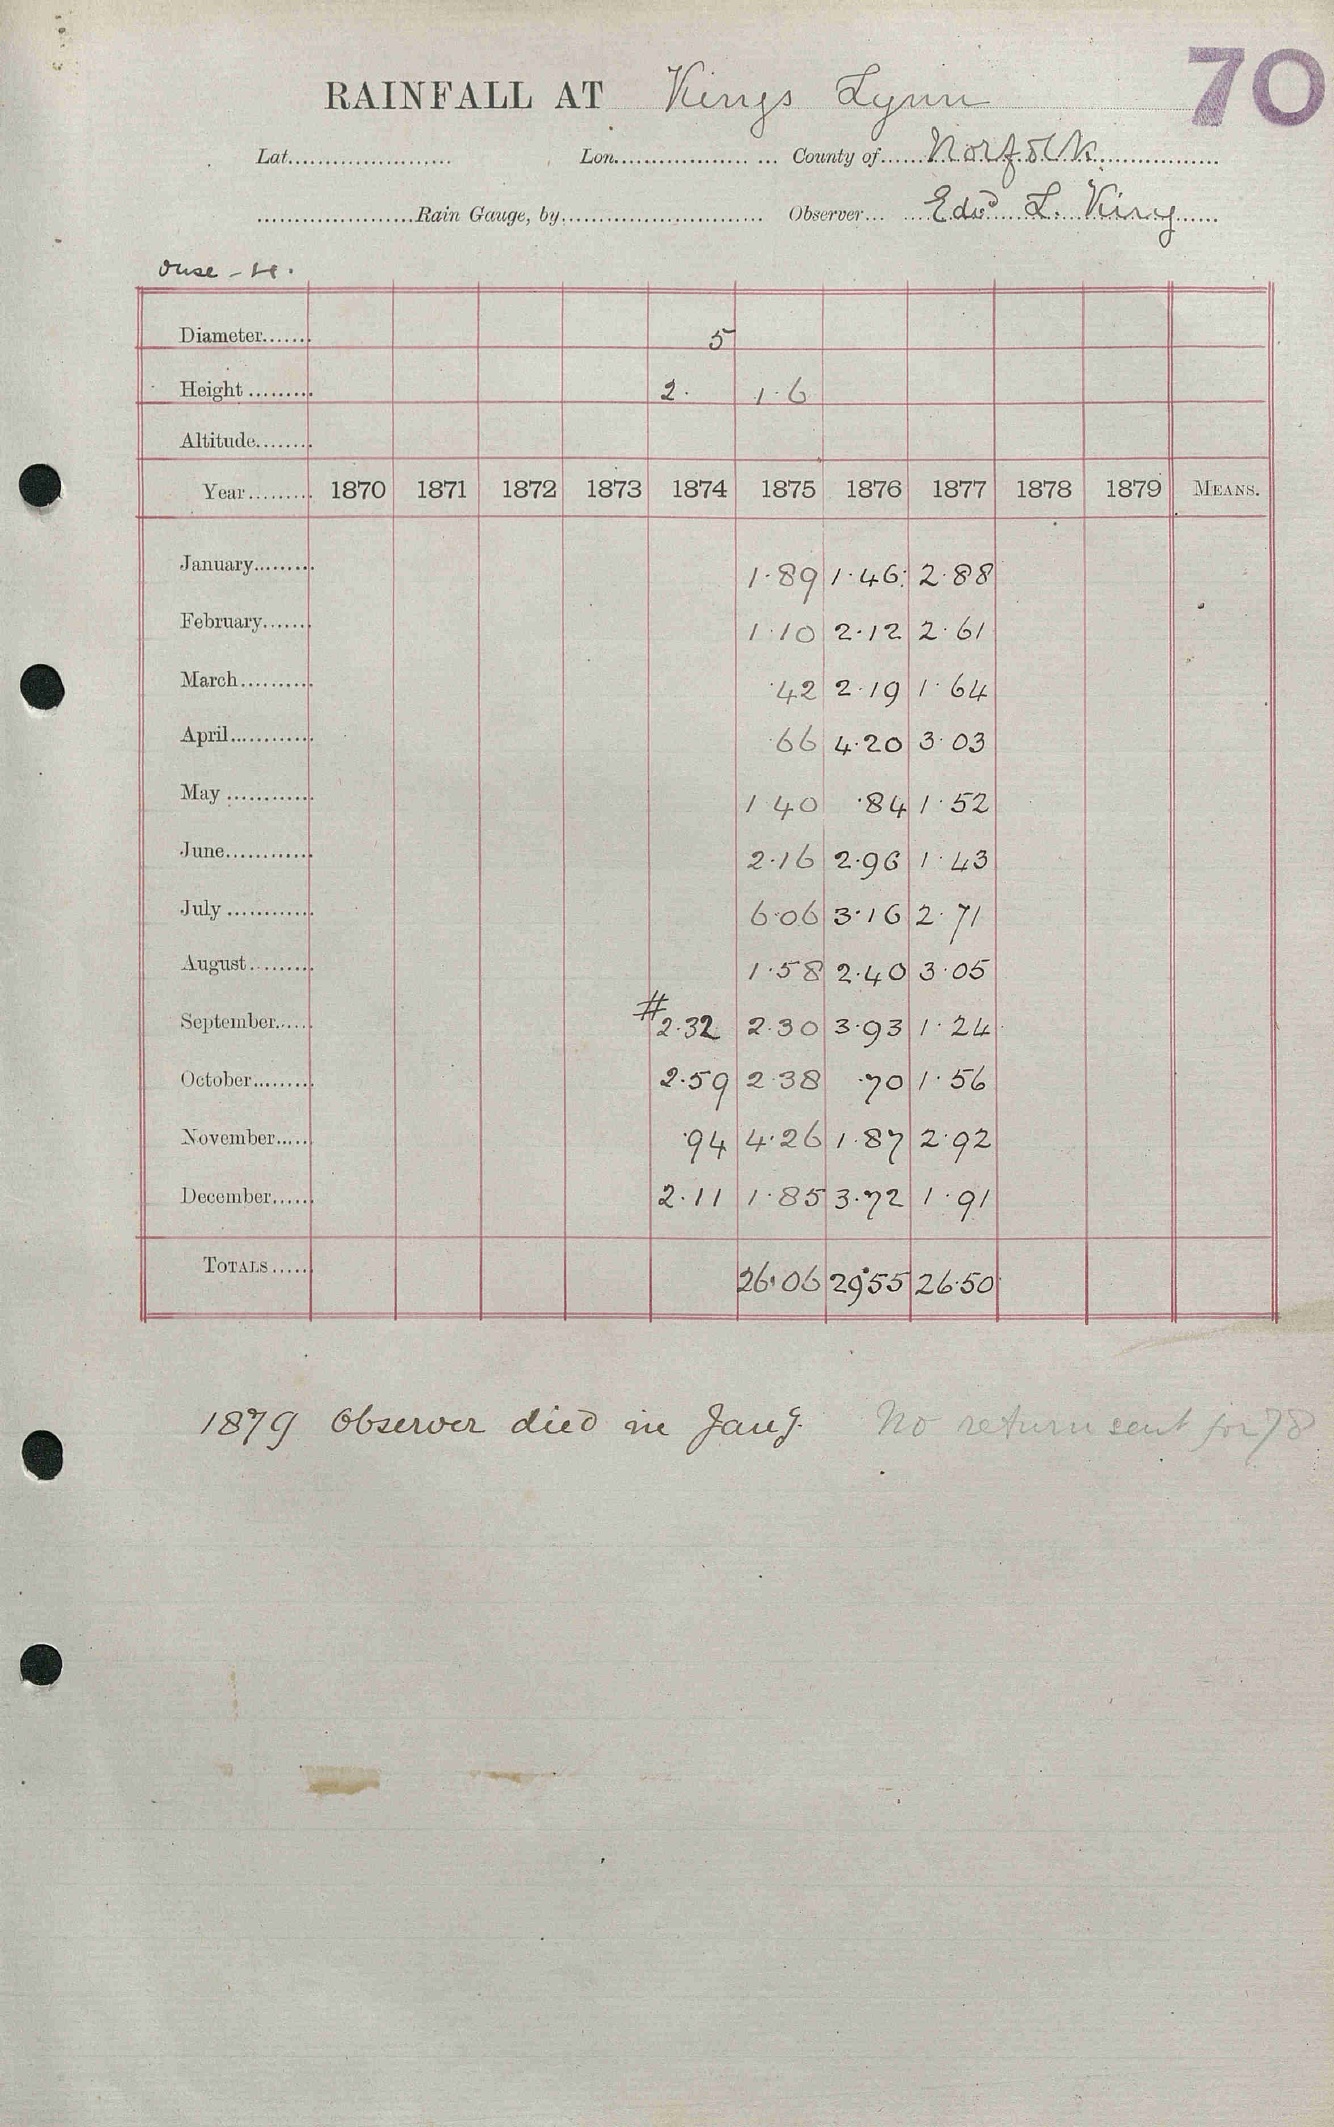 70
RAINFALL AT Kings Lynn
Lat. Lon. County of Norfolk
Rain Gauge, by Observer Edwd L. King
Ouse -
Diameter 5
Height 2. 1.6
Altitude
Year 1870 1871 1872 1873 1874 1875 1876 1877 1878 1879 MEANS.
January 1.89 1.46 2.88
February 1.10 2.12 2.61
March .42 2.19 1.64
April .66 4.20 3.03
May 1 40 .84 1.52
June 2.16 2.96 1.43
July 6.06 3.16 2.71
August 1.58 2.40 3.05
September #2.32 2.30 3.93 1.24
October 2.59 2.38 .70 1.56
November .94 4.26 1.87 2.92
December 2.11 1.85 3.72 1.91
TOTALS 26.06 29.55 26.50
1879 Observer died in Jany. No return sent for 78